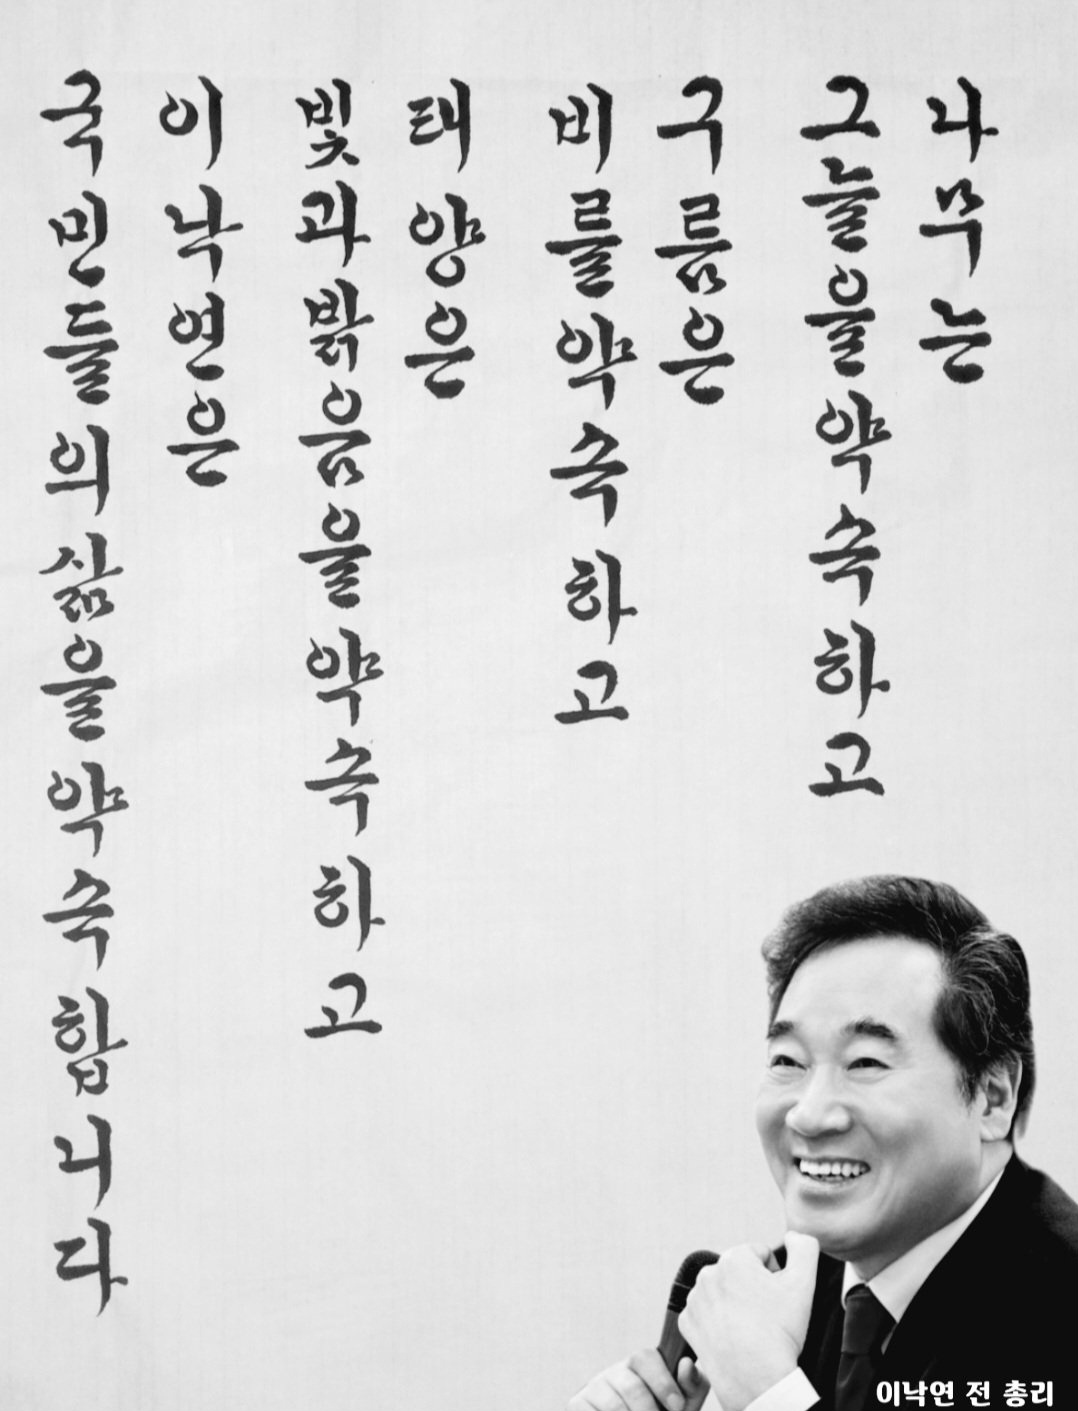 나무는
그늘을약속하고
구름은
비를약속하고
태양은
빛과밝음을약속하고
이낙연은
국민들의삶을약속합니다
이낙연 전 총리